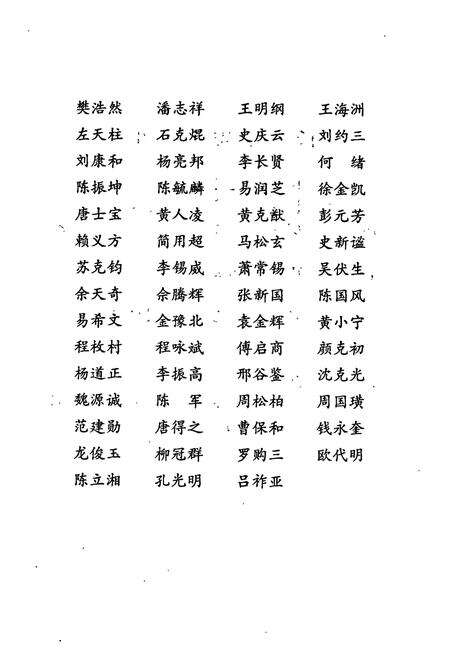 樊浩然 潘志祥 王明纲 王海洲
左天柱 石克焜 史庆云 刘约三
刘康和 杨亮邦 李长贤 何 绪
陈振坤 陈毓麟 易润芝 徐金凯
唐士宝 黄人凌 黄克猷 彭元芳
赖义方 简用超 马松玄 史新谧
苏克钧 李锡威 萧常锡 吴伏生
余天奇 佘腾辉 张新国 陈国风
易希文 金豫北 袁金辉 黄小宁
程枚村 程咏斌 傅启商 颜克初
杨道正 李振高 邢谷鉴 沈克光
魏源诚 陈 军 周松柏 周国璜
范建勋 唐得之 曹保和 钱永奎
龙俊玉 柳冠群 罗购三 欧代明
陈立湘 孔光明 吕祚亚